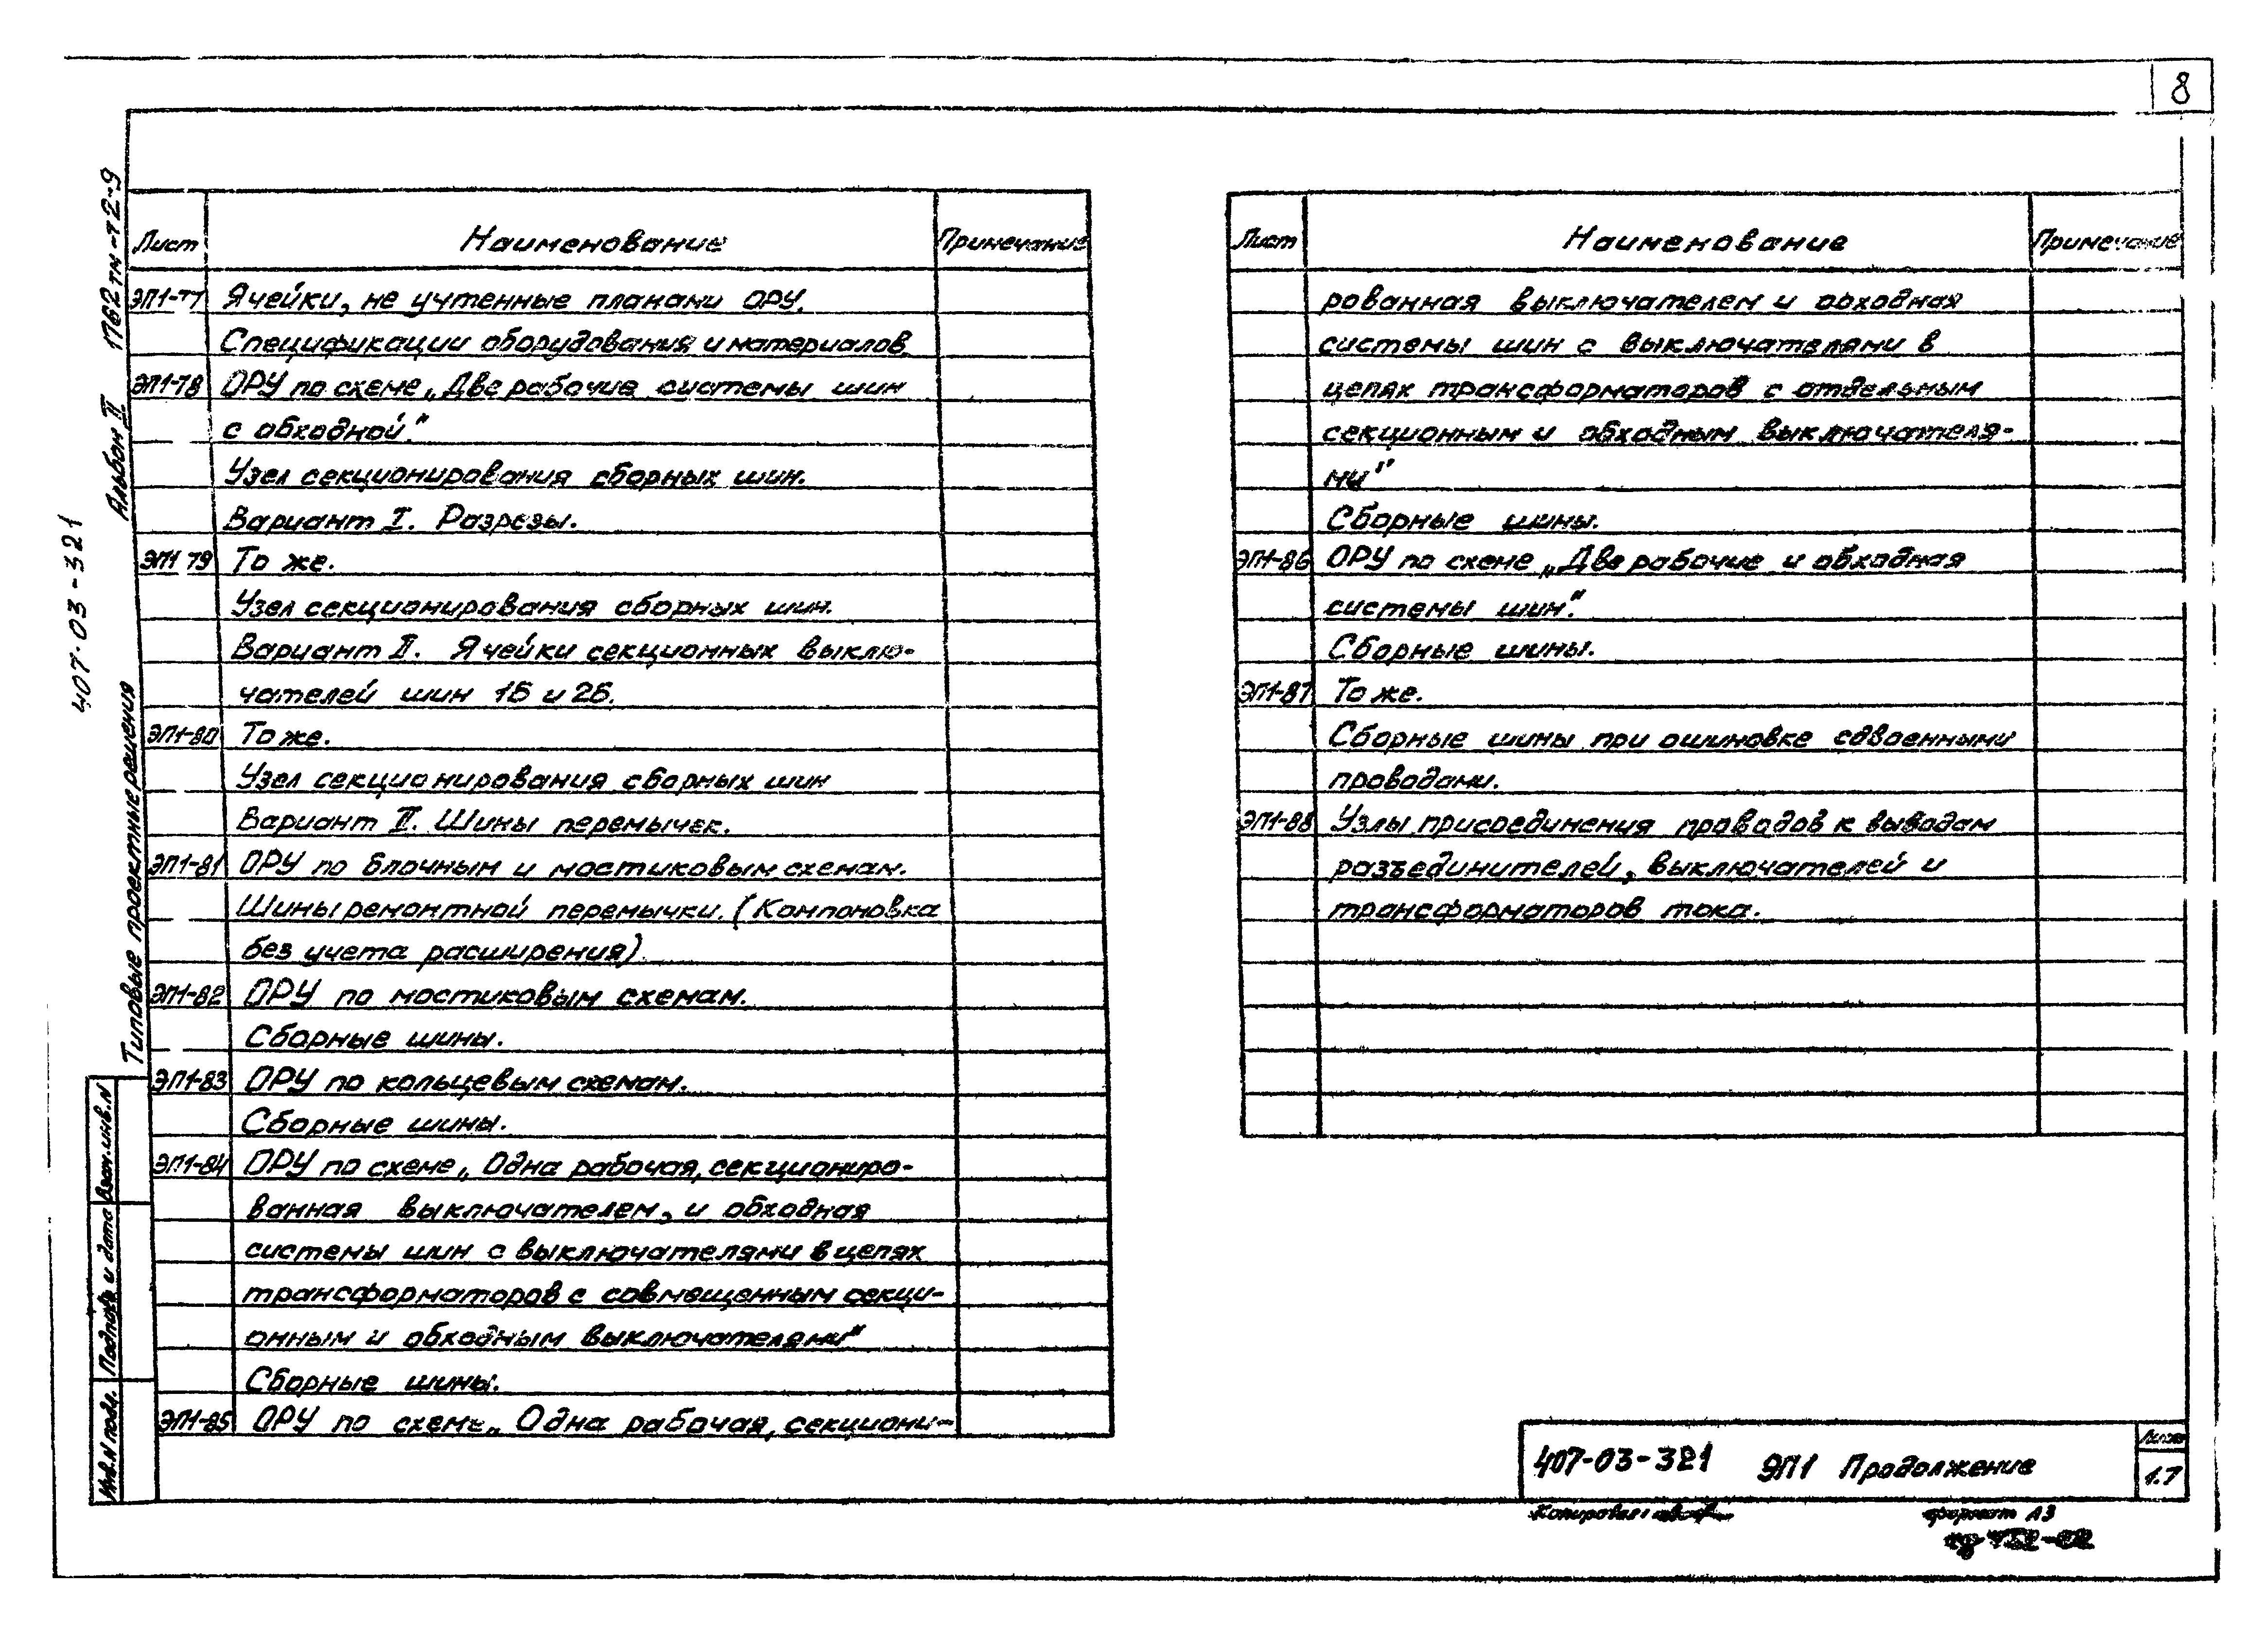 8
Лист Наименование Примечание
ЭП1-77 Ячейки, не учтенные планами ОРУ.
Спецификации оборудования и материалов.
ЭП1-78 ОРУ по схеме „Две рабочие системы шин
с обходной."
Узел секционирования сборных шин.
Вариант I. Разрезы.
ЭП1 79 То же.
Узел секционирования сборных шин.
Вариант II. Ячейки секционных выклю-
чателей шин 1Б и 2Б.
ЭП1-80 То же.
Узел секционирования сборных шин
Вариант II. Шины перемычек.
ЭП1-81 ОРУ по блочным и мостиковым схемам.
Шины ремонтной перемычки. (Компоновка
без учета расширения).
ЭП1-82 ОРУ по мостиковым схемам.
Сборные шины.
ЭП1-83 ОРУ по кольцевым схемам.
Сборные шины.
ЭП1-84 ОРУ по схеме „Одна рабочая, секциониро-
ванная выключателем, и обходная
системы шин с выключателями в цепях
трансформаторов с совмещенным секци-
онным и обходным выключателями"
Сборные шины.
ЭП1-85 ОРУ по схеме „Одна рабочая, секциони-
Лист Наименование Примечание
рованная выключателем и обходная
системы шин с выключателями в
цепях трансформаторов с отдельным
секционным и обходным выключателя-
ми"
Сборные шины.
ЭП1-86 ОРУ по схеме „Две рабочие и обходная
системы шин."
Сборные шины.
ЭП1-87 То же.
Сборные шины при ошиновке сдвоенными
проводами.
ЭП1-88 Узлы присоединения проводов к выводам
разъединителей, выключателей и
трансформаторов тока.
407-03-321 ЭП1 Продолжение
Лист
1.7
Копировал
формат А3
407-03-321
Типовые проектные решения Альбом II 1762тм-т2-9
Инв.N подл. Подпись и дата Взам.инв.N